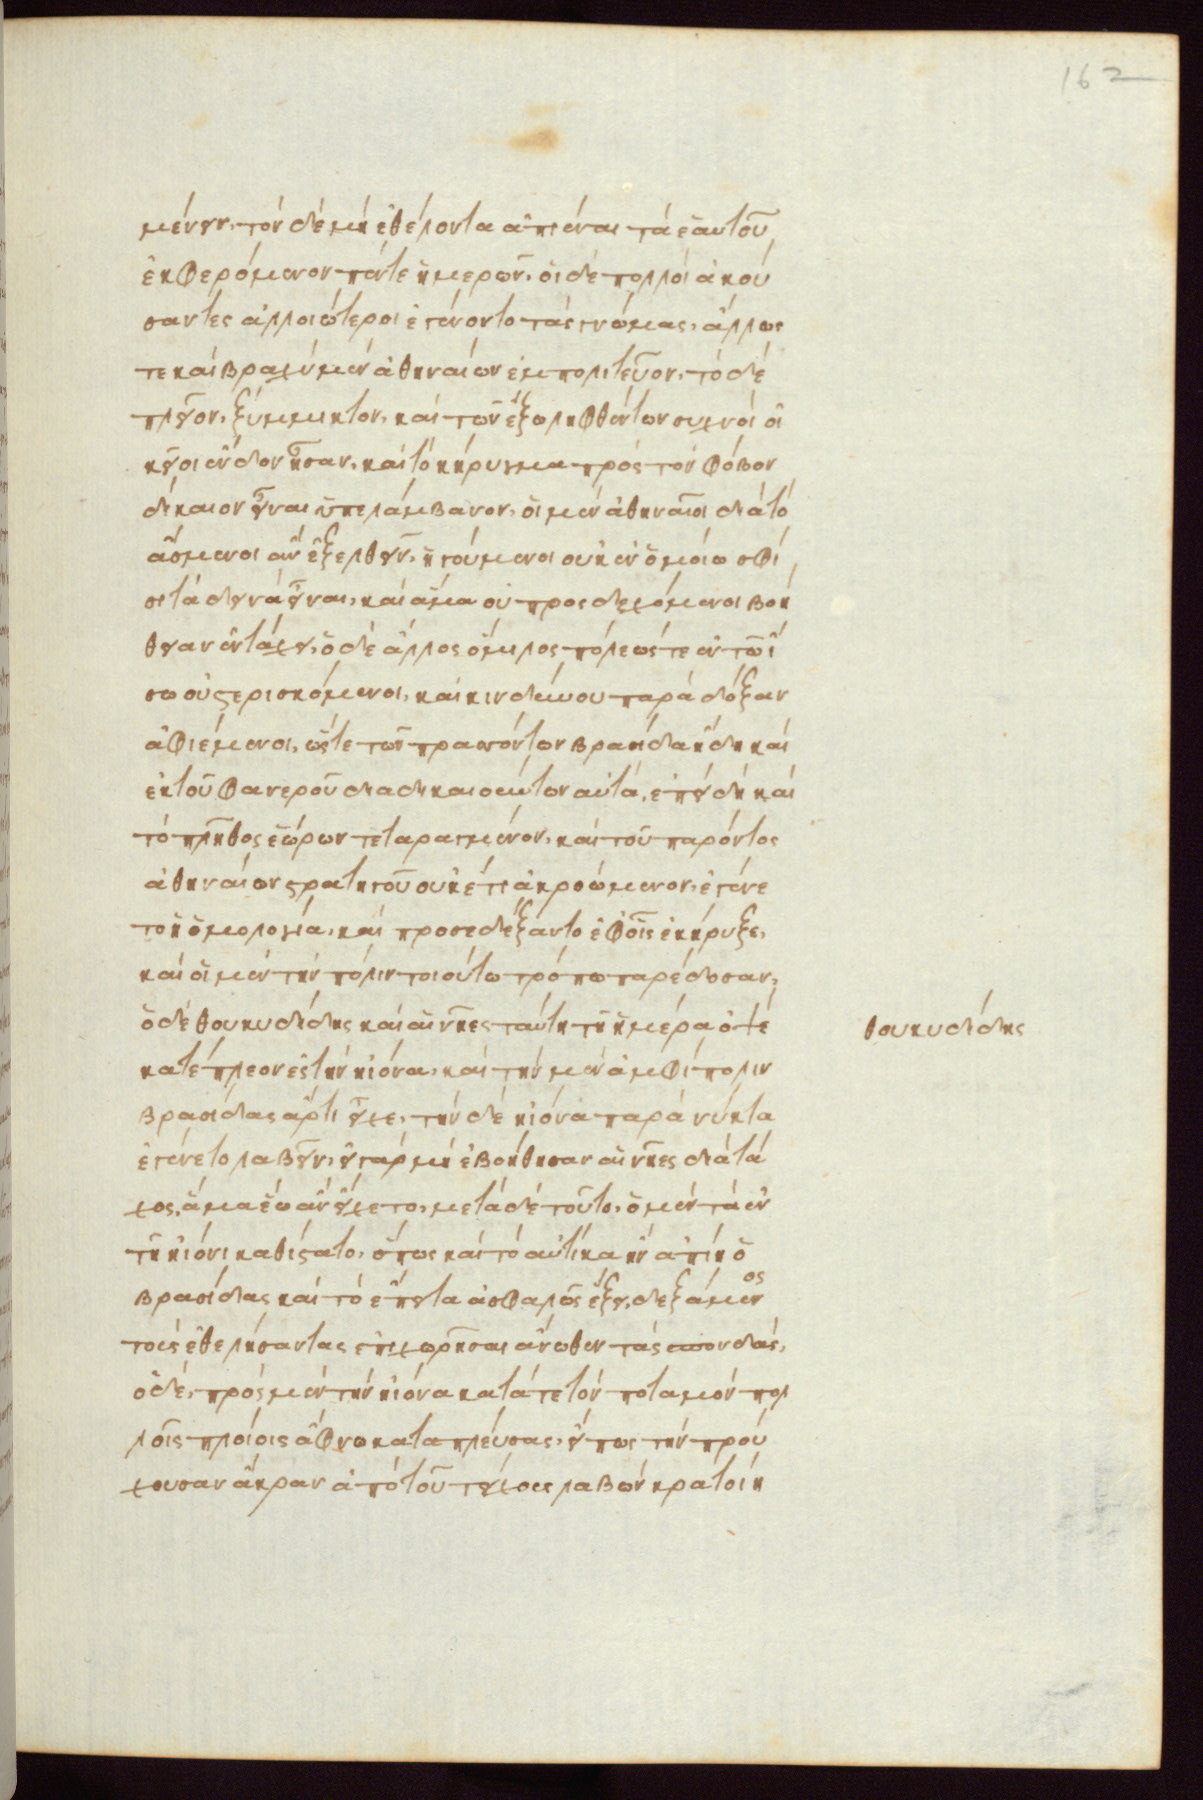 162
μένειν, τὸν δὲ μὴ ἐθέλοντα ἀπιέναι τὰ ἑαυτοῦ
ἐκφερόμενον πέντε ἡμερῶν, οἱ δὲ πολλοὶ ἀκού
σαντες ἀλλοιότεροι ἐγένοντο τὰς γνώμας, ἄλλως
τε καὶ βραχὺ μὲν ἀθηναίων ἐμπολιτεῦον, τὸ δὲ
πλεῖον, ξύμμικτον, καὶ τῶν ἔξω ληφθέντων συχνοὶ οἰ
κεῖοι ἔνδον ἦσαν, καὶ τὸ κήρυγμα πρὸς τὸν φόβον
δίκαιον εἶναι ὑπελάμβανον, οἱ μὲν ἀθηναῖοι διὰ τὸ
ἄσμενοι ἂν ἐξελθεῖν, ἡγούμενοι οὐκ ἐν ὁμοίω σφί
σι τὰ δεινὰ εἶναι, καὶ ἅμα οὐ προσδεχόμενοι βοή
θειαν ἐν τάχει, ὁ δὲ ἄλλος ὅμιλος πόλεώς τε ἐν τῶ ἴ
σω οὐ στερισκόμενοι, καὶ κινδύνου παρὰ δόξαν
ἀφιέμενοι, ὥστε τῶν πρασσόντων βρασίδα ἤδη καὶ
ἐκ τοῦ φανεροῦ διαδικαιούντων αὐτά, ἐπειδὴ καὶ
τὸ πλῆθος ἑώρων τεταραγμένον, καὶ τοῦ παρόντος
ἀθηναίων στρατηγοῦ οὐκέτι ἀκροώμενον, ἐγένε
το ἡ ὁμολογία, καὶ προσεδέξαντο ἐφ οἷς ἐκήρυξε,
καὶ οἱ μὲν τὴν πόλιν τοιούτω τρόπω παρέδοσαν,
ὁ δὲ θουκυδίδης καὶ αἱ νῆες ταύτη τῆ ἡμέρα ὀψὲ
κατέπλεον ἐς τὴν ἠϊόνα, καὶ τὴν μὲν ἀμφίπολιν
βρασίδας ἄρτι εἶχε, τὴν δὲ ἠϊόνα παρὰ νύκτα
ἐγένετο λαβεῖν, εἰ γὰρ μὴ ἐβοήθησαν αἱ νῆες διὰ τά
χος, ἅμα ἕω ἂν εἴχετο, μετὰ δὲ τοῦτο, ὁ μὲν τὰ ἐν
τῆ ἠϊόνι καθίστατο, ὅπως καὶ τὸ αὐτίκα ἢν ἐπίη ὁ
βρασίδας καὶ τὸ ἔπειτα ἀσφαλῶς ἕξει, δεξάμενος
τοὺς ἐθελήσαντας ἐπιχωρῆσαι ἄνωθεν τὰς σπονδάς,
ὁ δέ, πρὸς μὲν τὴν ἠϊόνα κατά τε τὸν ποταμὸν πολ
λοῖς πλοίοις ἄφνω καταπλεύσας, εἴ πως τὴν πρού
χουσαν ἄκραν ἀπὸ τοῦ τείχους λαβὼν κρατοίη
θουκυδίδης